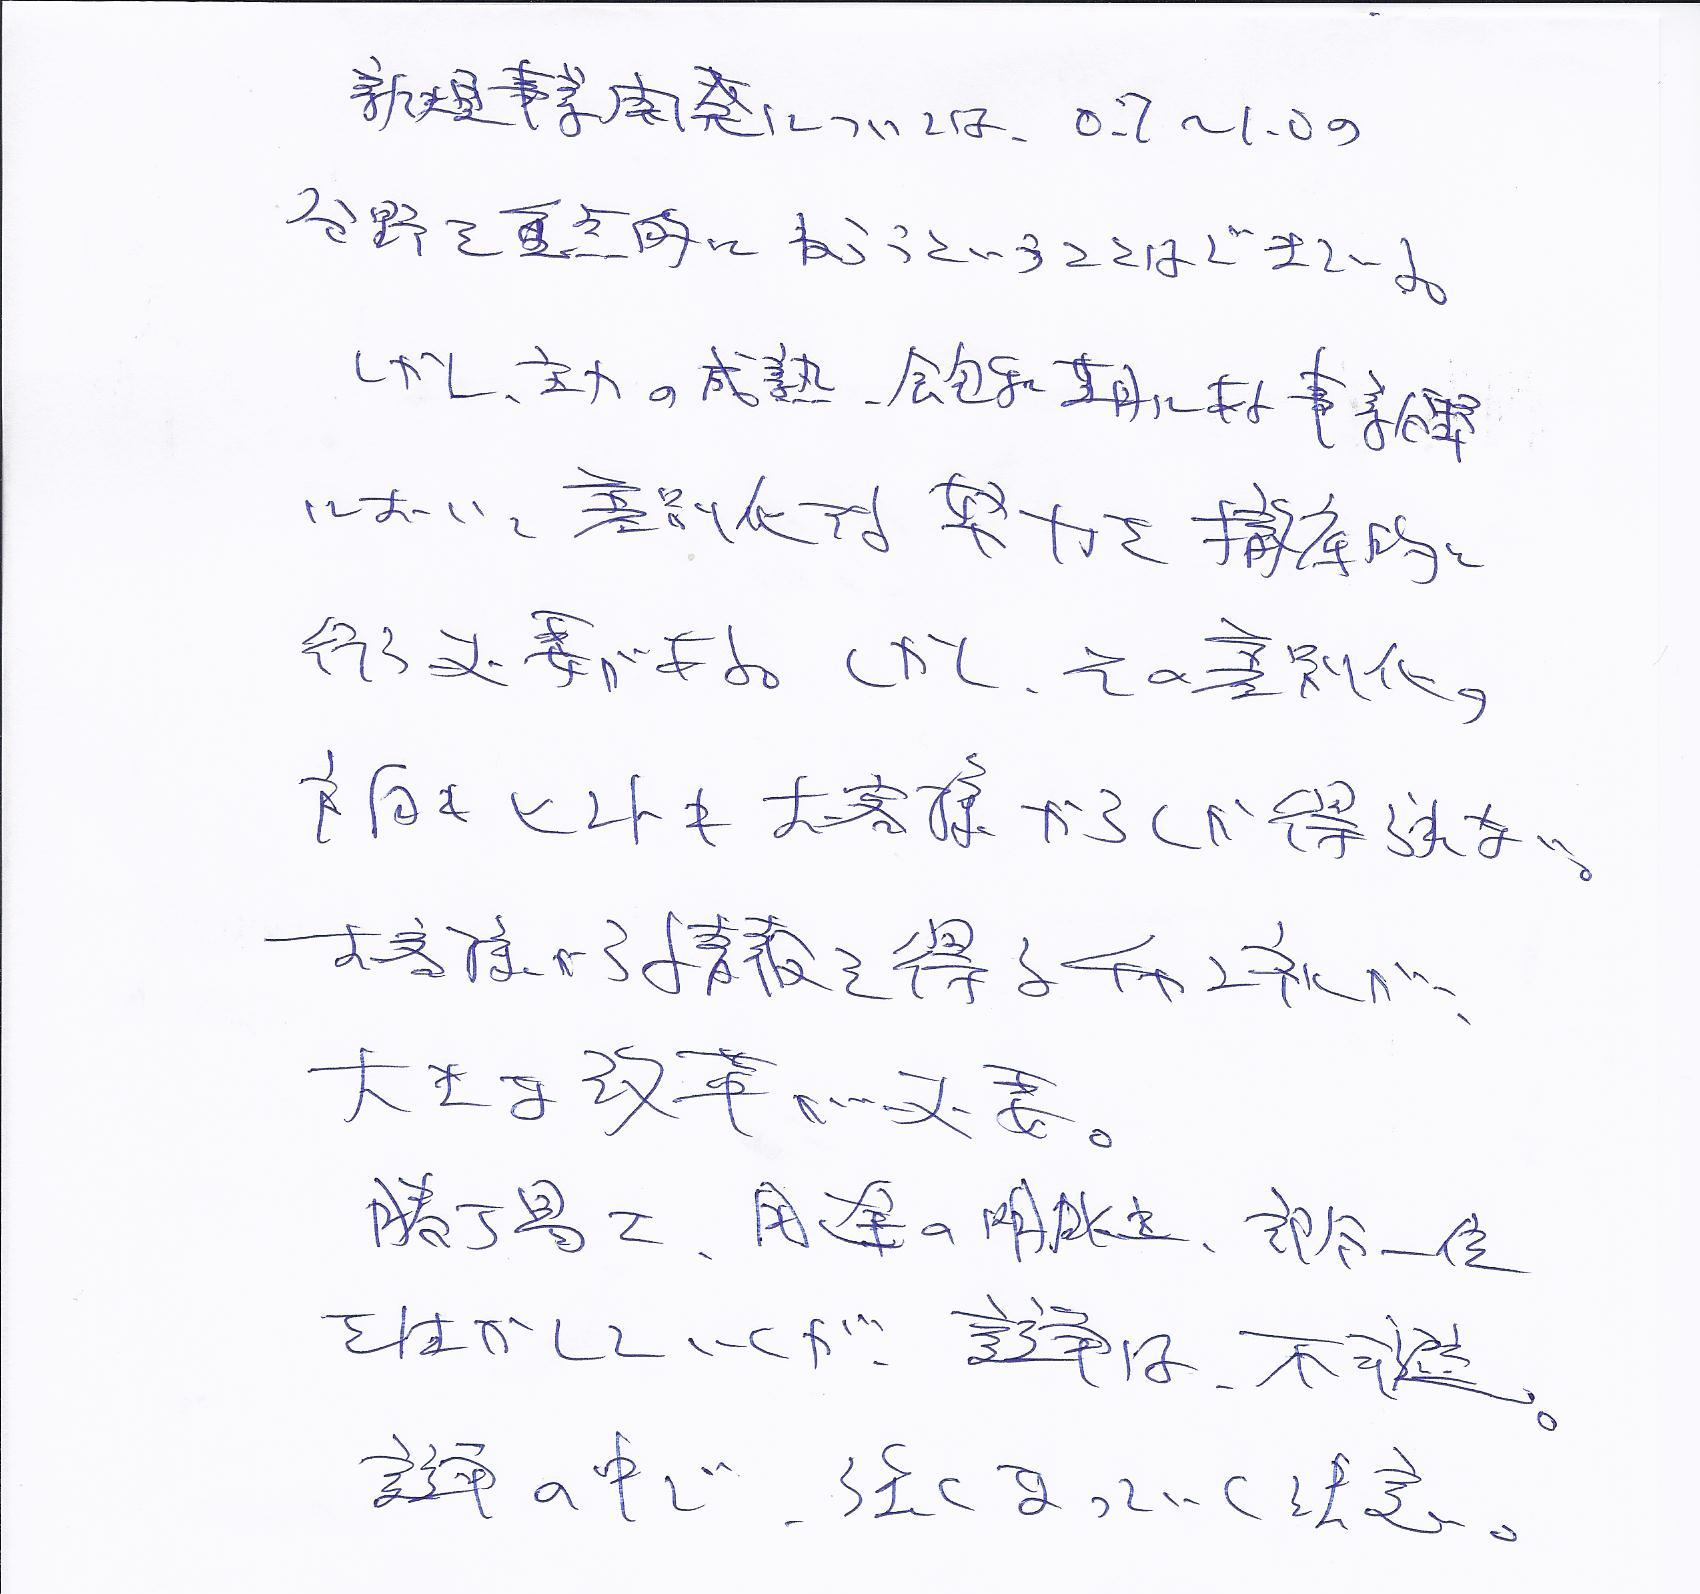 新規事業開発については、0.7〜1.0の
分野を重点的にねらうということはできている。
しかし、主力の成熟、飽和期にある事業
において差別化する努力を徹底的に
行う必要がある。しかし、その差別化の
方向もヒントもお客様からしか得られない。
お客様から情報を得るチャンネルが、
大きな改革が必要。
勝ち易で、用途の開拓、部分一位
をはかしていくが、競争は、不可避。
競争の中で、強くなっていく決意。